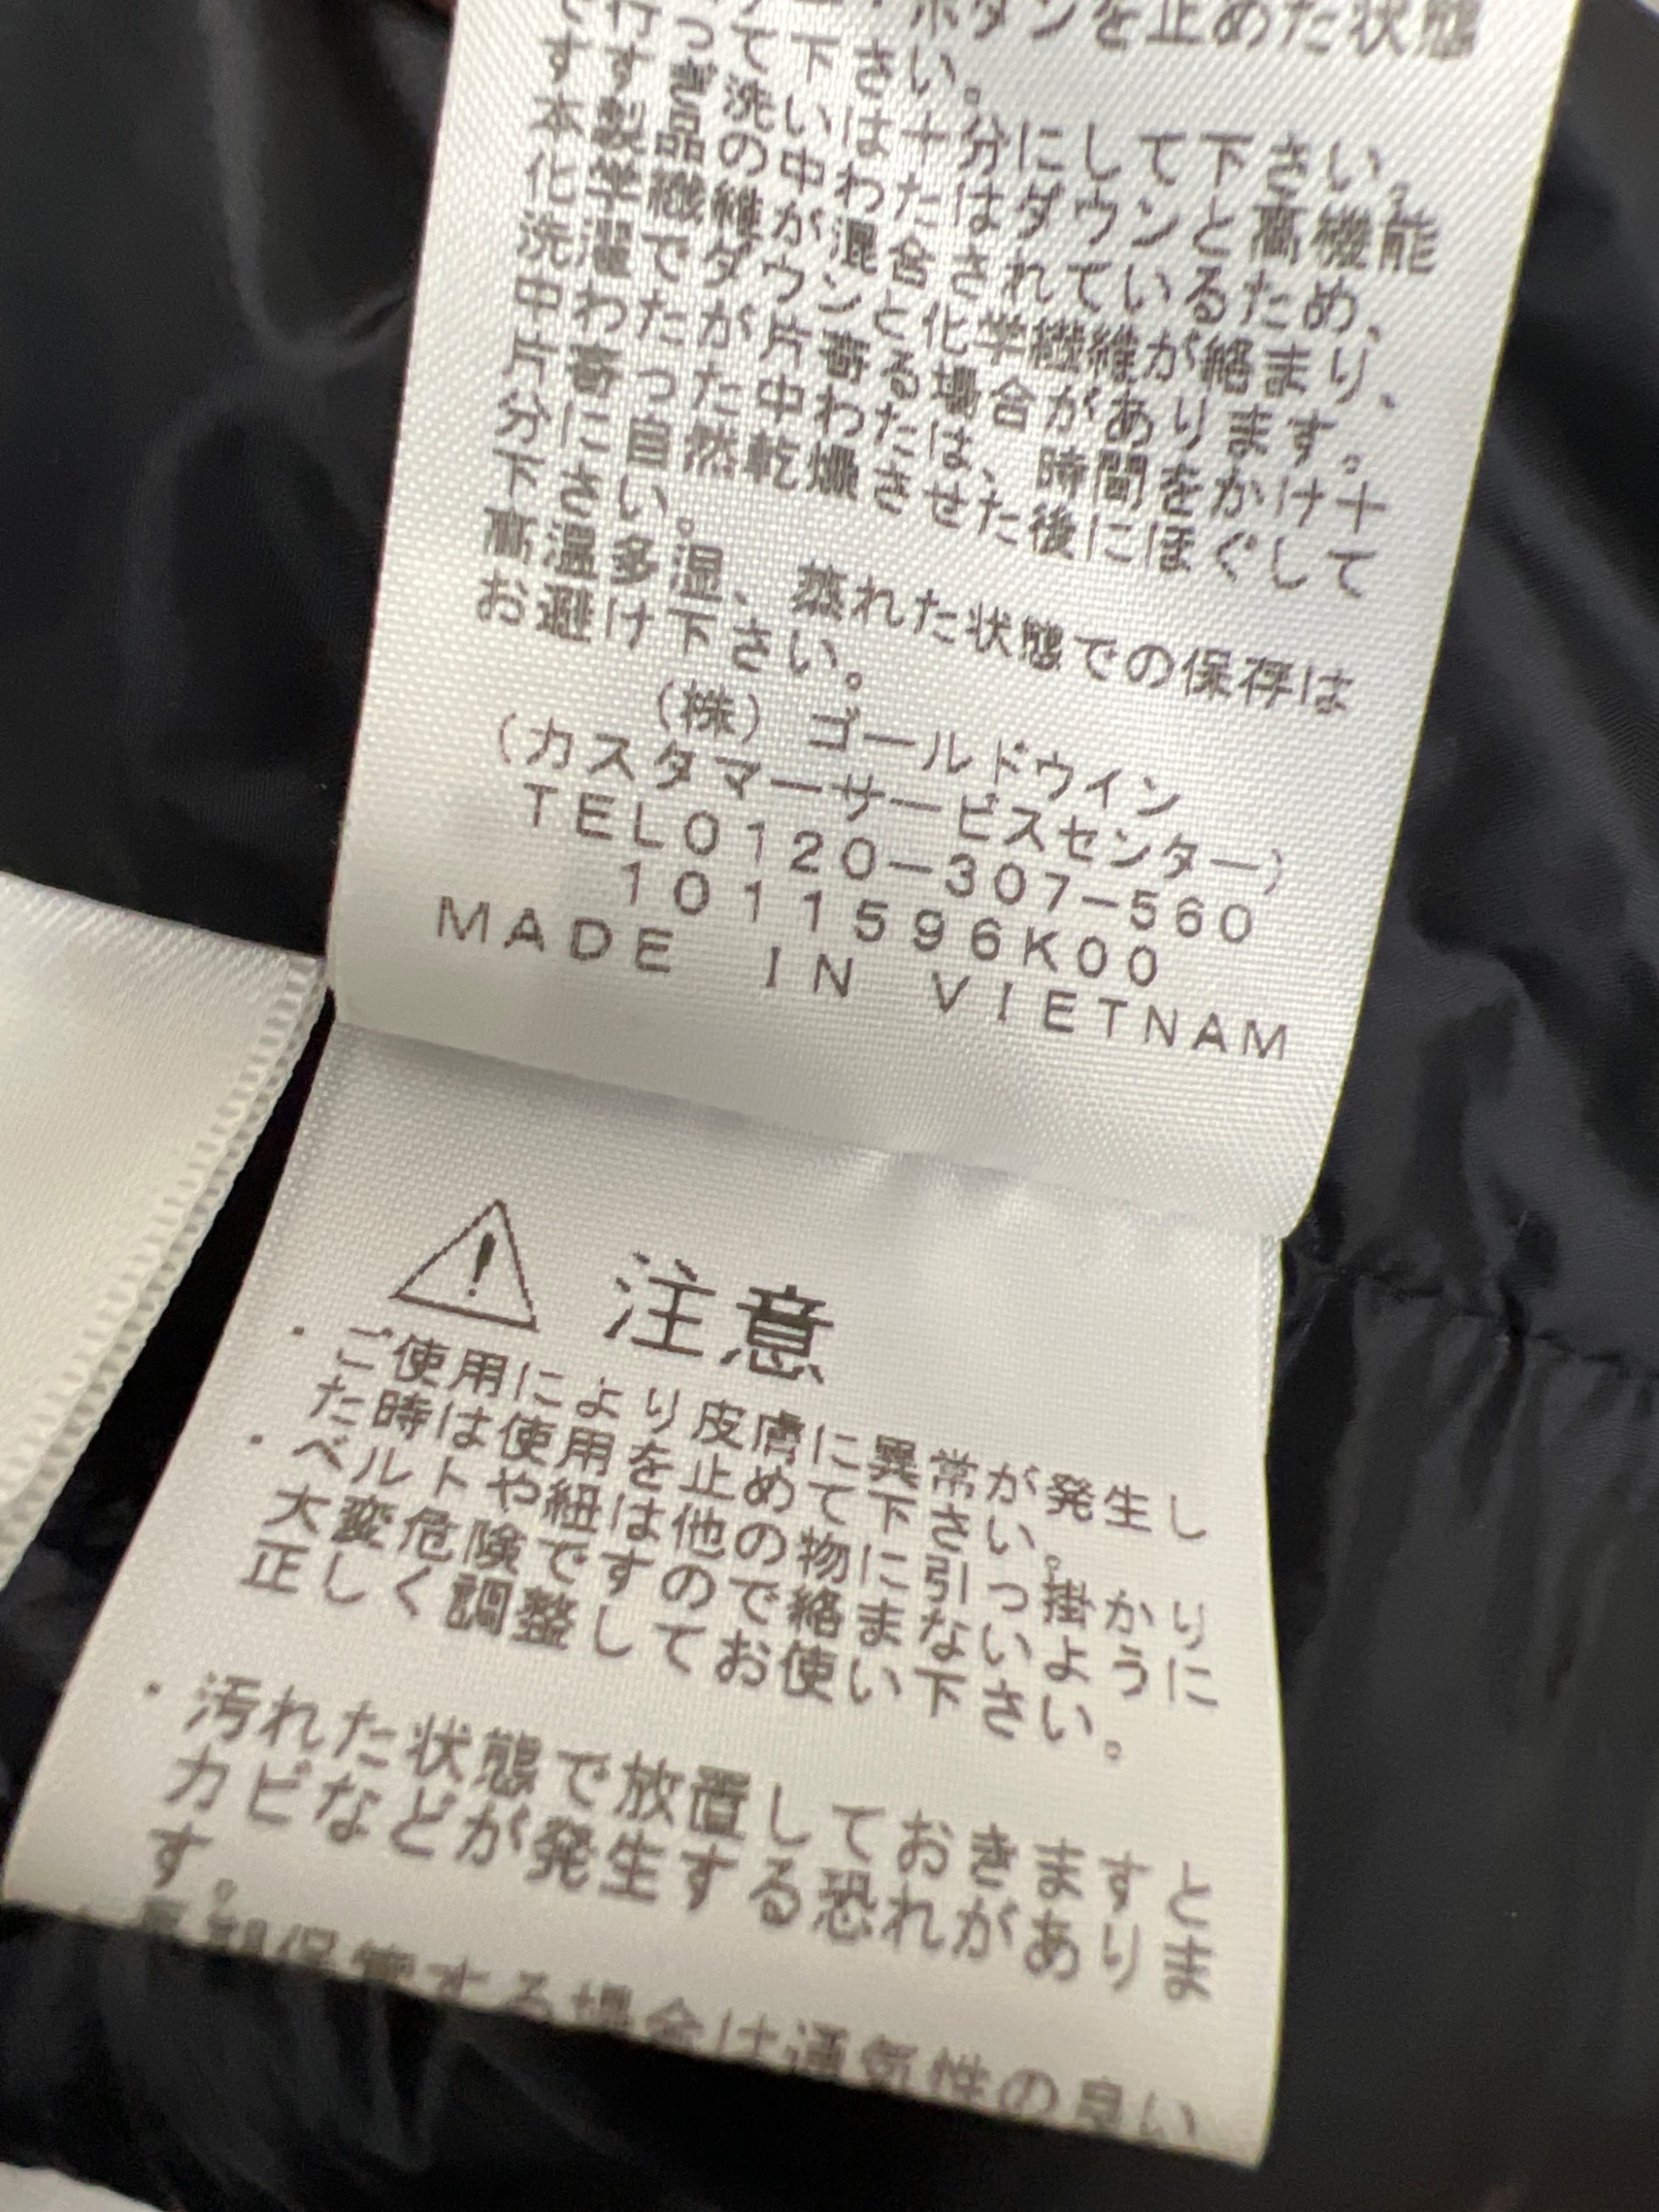 ボタンを止めた状態
で行って下さい。
すすぎ洗いは十分にして下さい。
本製品の中わたはダウンと高機能
化学繊維が混合されているため、
洗濯でダウンと化学繊維が絡まり、
中わたが片寄る場合があります。
片寄った中わたは、時間をかけ十
分に自然乾燥させた後にほぐして
下さい。
高温多湿、蒸れた状態での保存は
お避け下さい。
(株)ゴールドウイン
(カスタマーサービスセンター)
TEL0120-307-560
1011596K00
MADE IN VIETNAM
注意
・ご使用により皮膚に異常が発生し
た時は使用を止めて下さい。
・ベルトや紐は他の物に引っ掛かり
大変危険ですので絡まないように
正しく調整してお使い下さい。
・汚れた状態で放置しておきますと
カビなどが発生する恐れがありま
す。
保管する場合は通気性の良い